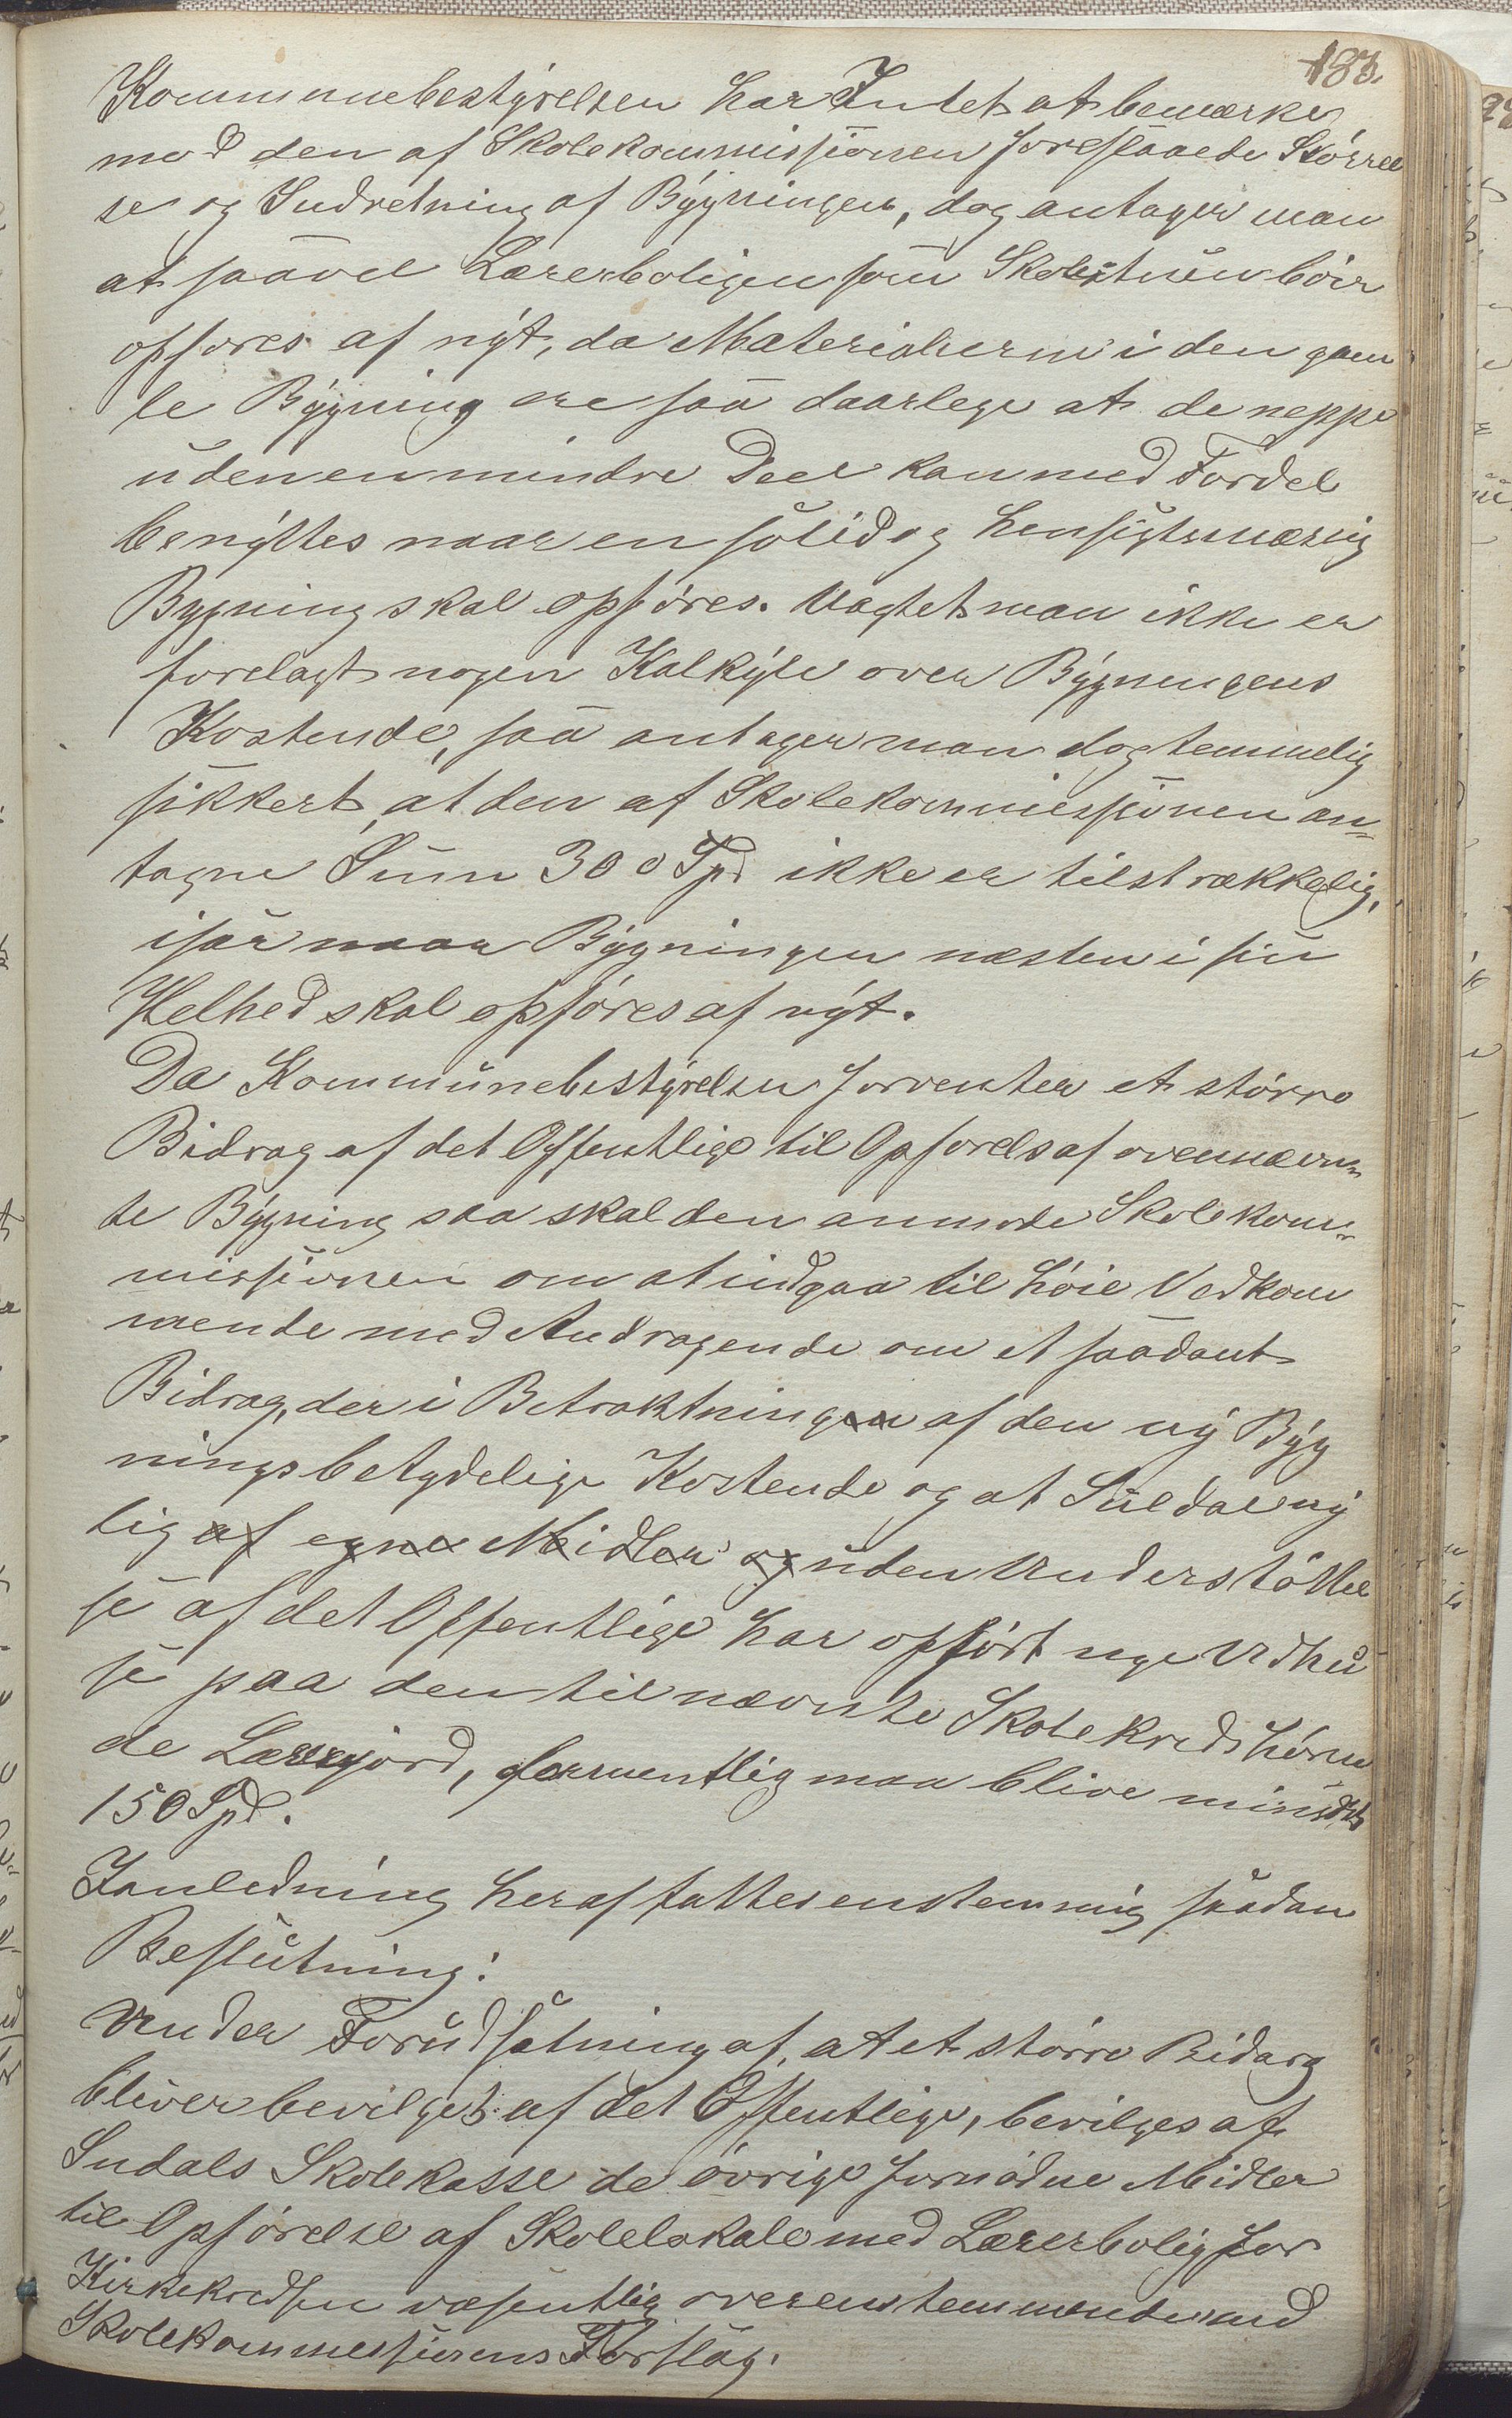 187.
Kommunebestÿrelsen har Intet at bemærke
mod den af Skolekommissionen foreslaaede Størrel
se og Indretning af Bÿgningen, dog antager man
at saavel Lærerboligen som Skolestuen böir
opfores af nÿt, da Materialierne i den gam
le Bÿgning ere saa daarlege at de neppe
uden en mindre Deel kan med Fordel
benÿttes naar en solid og hensigtsmæsig
Bygning skal opföres. Uagtet man ikke er
forelagt nogen Kalkÿle over Bÿgningens
Kostende, saa antager man dog temmelig
sikkert, at den af Skolekommissionen an-
tagne Sum 300 Spd ikke er tilstrækkelig,
især naar Bÿgningen næsten i sin
Helhed skal opföres af nÿt.
Da Kommunebestÿrelsen forventer et större
Bidrag af det Offentlige til Opforels af ovennævn-
te Bÿgning saa skal den anmode Skolekom-
missionen om at indgaa til höie Vedkom
mende med Andragende om et saadant
Bidrag, der i Betraktningen af den nÿ Bÿg
nings betydelige Kostende og at Suldal nÿ
lig af egne Midler og uden Understöttel
se af det Offentlige har opfört nye Udhu
se paa den til nævnte Skolekreds hören
de Lærerjord, formentlig maa blive mindst
150 Spd.
Ianledning heraf fattes enstemmig saadan
Beslutning:
Under Forudsætning af, at et större Bidarg
bliver bevilget af det Offentlige, bevilges af
Sudals Skolekasse de övrige fornödne Midler
til Opförelse af Skolelokale med Lærerbolig for
Kirkekredsen væsentlig overenstemmende med
Skolekommissionens Forslag.